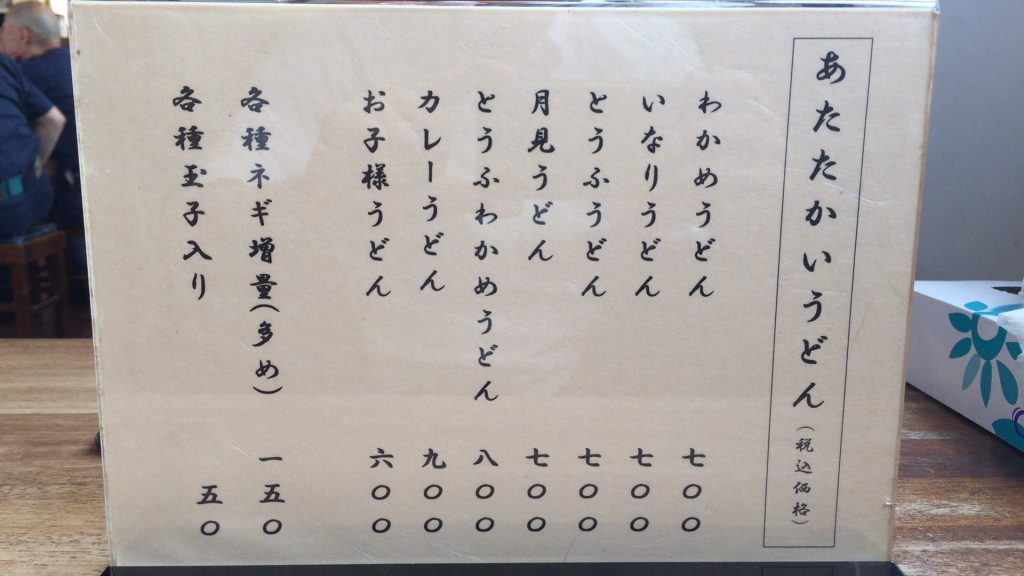 あたたかいうどん(税込価格)
わかめうどん 七〇〇
いなりうどん 七〇〇
とうふうどん 七〇〇
月見うどん 七〇〇
とうふわかめうどん 八〇〇
カレーうどん 九〇〇
お子様うどん 六〇〇
各種ネギ増量(多め) 一五〇
各種玉子入り 五〇